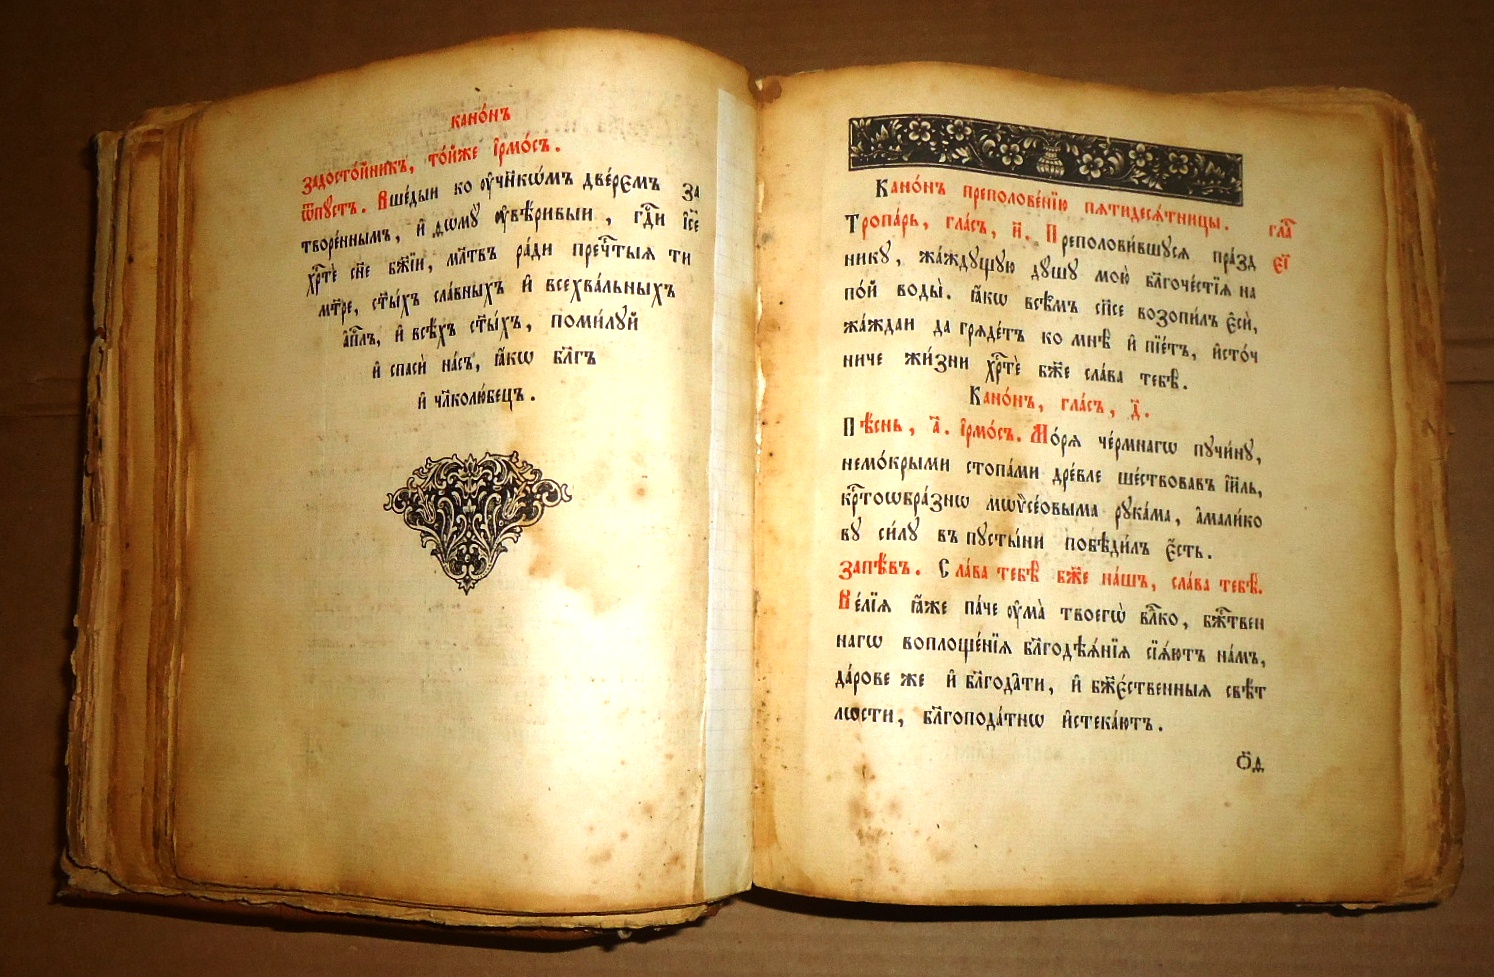 кано́нъ
задосто́йникъ, то́йже їрмо́съ.
ѿпустъ. Вше́дыи ко ᲂу҆чн҃кѡ́мъ две́рємъ за
творе́ннымъ, и҆ до́мꙋ ᲂу҆вѣ́ривыи, гдⷭ҇и і҆с҃е
хрⷭ҇тѐ сн҃е бж҃їи, мл҃твъ ра́ди пречⷭ҇тыѧ ти
мт҃ре, ст҃ы́хъ сла́вныхъ и҆ всехва́льныхъ
а҆пⷭ҇лъ, и҆ всѣ́хъ ст҃ы́хъ, поми́луй
и҆ спасѝ на́съ, ꙗ҆́кѡ бл҃гъ
и҆ чл҃колю́бецъ.
Кано́нъ преполове́нїю пѧтидесѧ́тницы.
глⷡ҇а
є҃ї
Тропа́рь, гла́съ, и҃. Преполови́вшусѧ пра́зд
нику, жа́ждущую душу мою̀ бл҃гоче́стїѧ на
по́й воды̀. ꙗ҆́кѡ всѣ́мъ сп҃се возопи́лъ є҆сѝ,
жа́ждаи да грѧде́тъ ко мнѣ̀ и҆ пїе́тъ, и҆сто́ч
ниче жи́зни хрⷭ҇тѐ бж҃е сла́ва тебѣ̀.
Кано́нъ, гла́съ, д҃.
Пѣ́снь, а҃. їрмо́съ. Мо́рѧ че́рмнагѡ пучи́ну,
немо́крыми стопа́ми дре́вле ше́ствовавъ і҆и҃ль,
крⷭ҇тоѡбра́знѡ мѡѷсе́овыма рука́ма, а҆мали́ко
ву си́лу въ пусты́ни побѣди́лъ є҆́сть.
запѣ́въ. Сла́ва тебѣ̀ бж҃е на́шъ, сла́ва тебѣ̀.
Ве́лїѧ ꙗ҆́же па́че ᲂу҆ма̀ твоегѡ̀ влⷣко, бжⷭ҇твен
нагѡ воплоще́нїѧ бл҃годѣѧ́нїѧ сїѧ́ютъ на́мъ,
да́рове же и҆ бл҃года́ти, и҆ бж҃е́ственныѧ свѣ́т
лости, бл҃гопода́тнѡ и҆стека́ютъ.
ѻ҃д